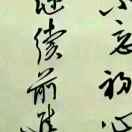 不忘初心
继续前进